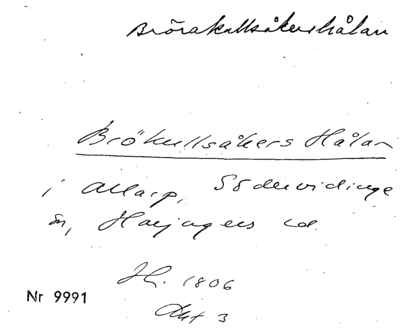 Brörakullsåkershålan
Brökullsåkers Hålan
i Allarp, Södervidinge
sn, Harjagers hd.
H. 1806
Akt 3
Nr 9991